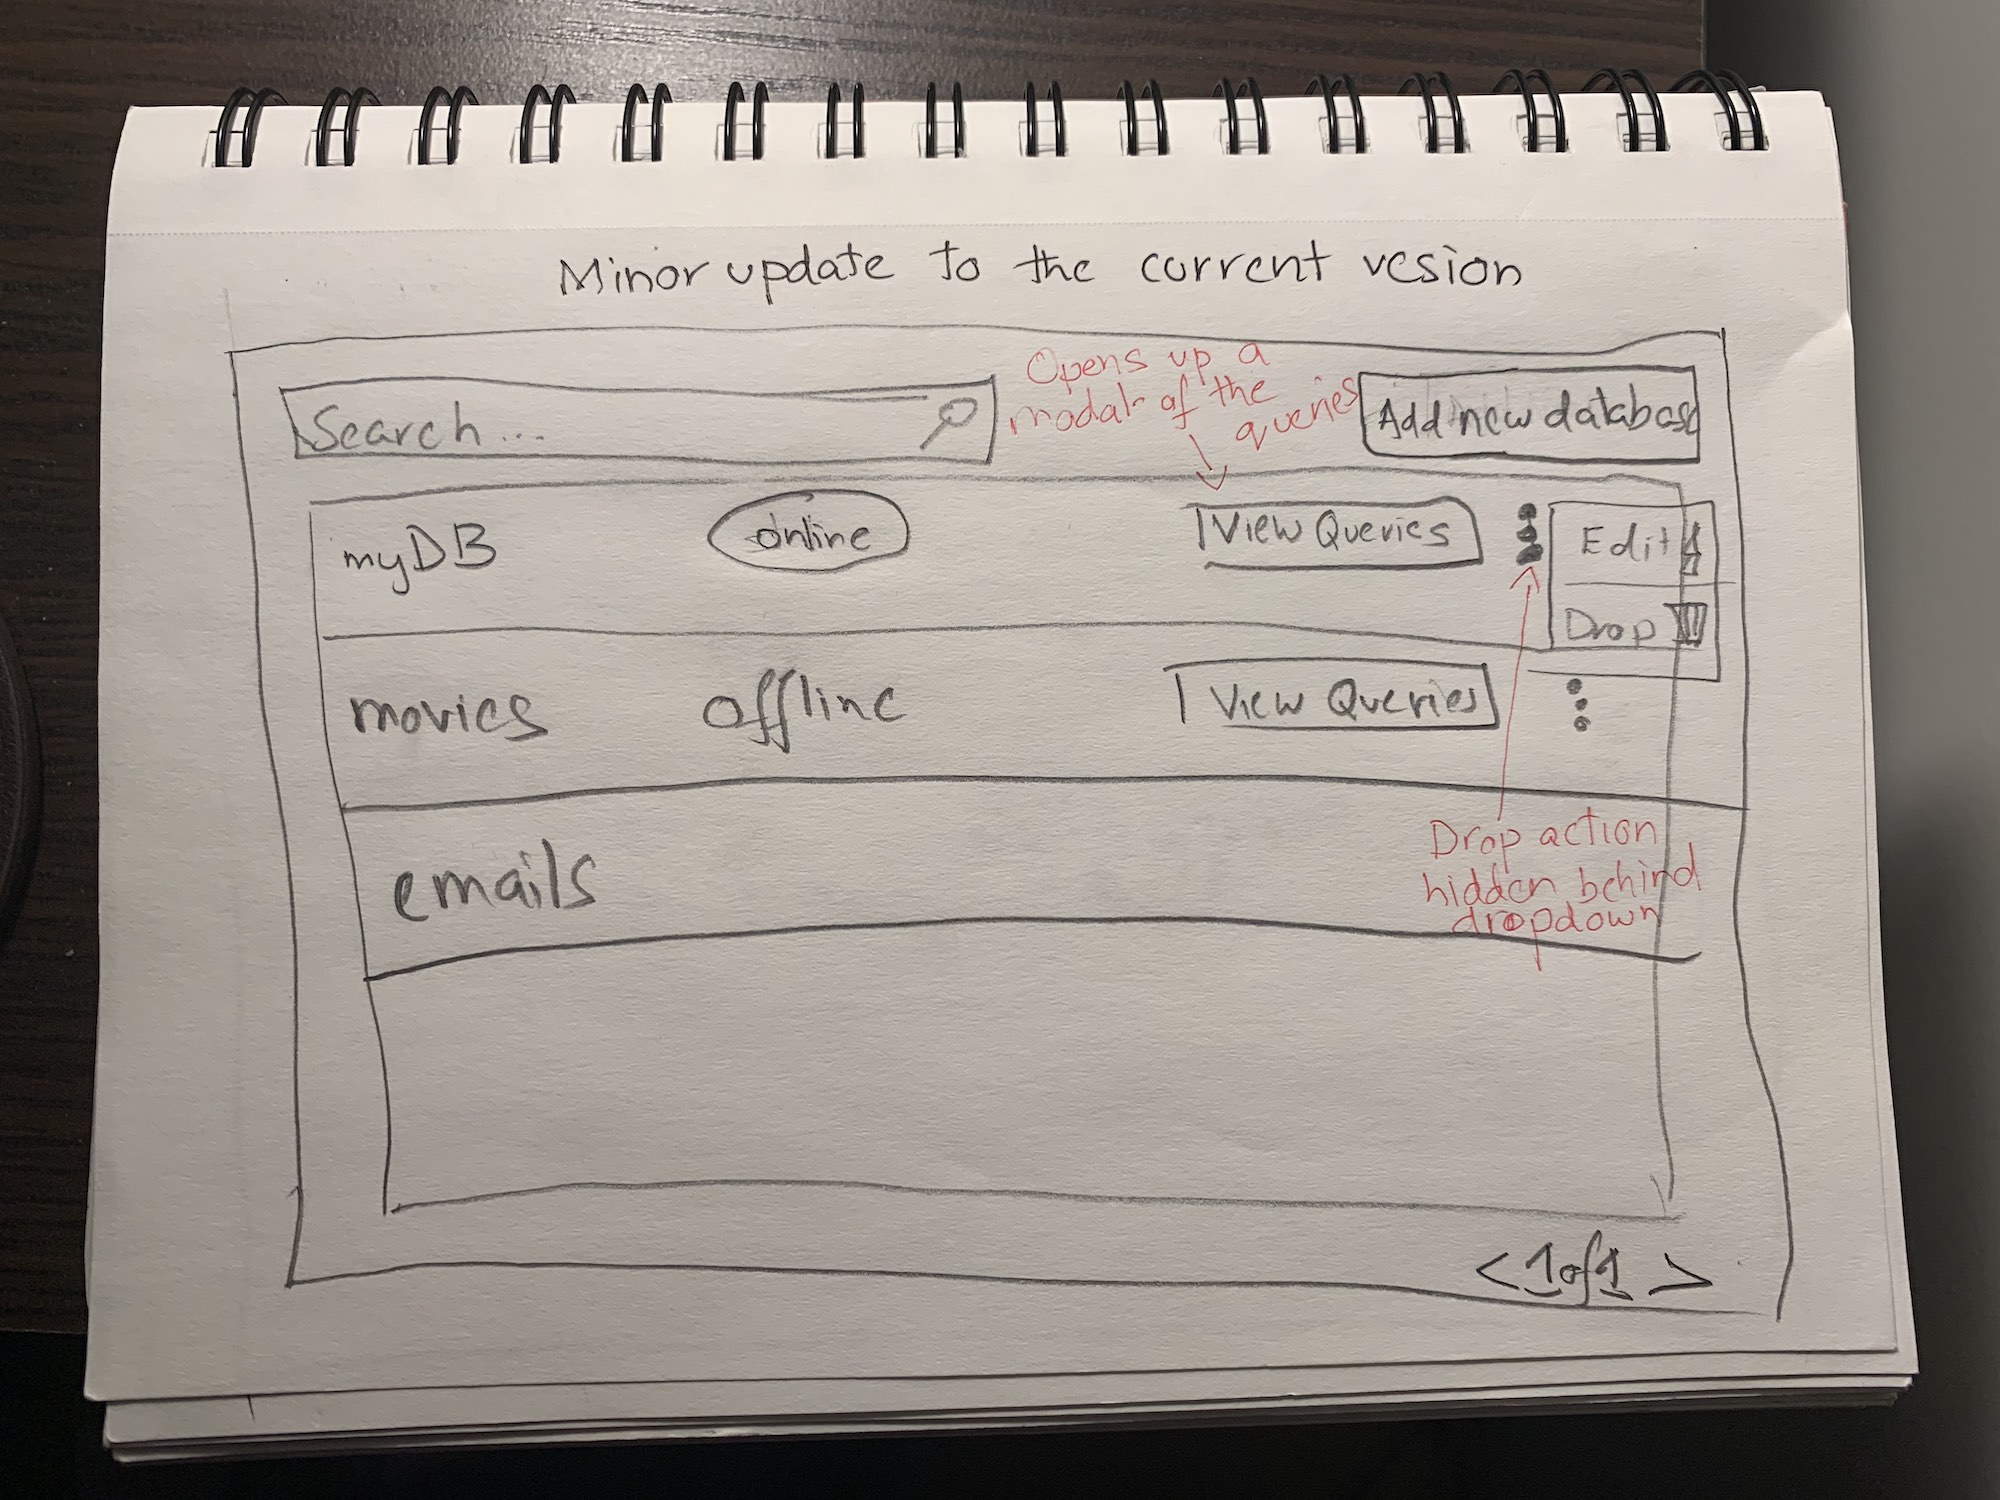 Minor update to the current vesion
Opens up a
modal of the
queries
Search...
Add new database
myDB
online
View Queries
Edit
Drop
movies
offline
View Queries
Drop action
hidden behind
dropdown
emails
< 1 of 1 >